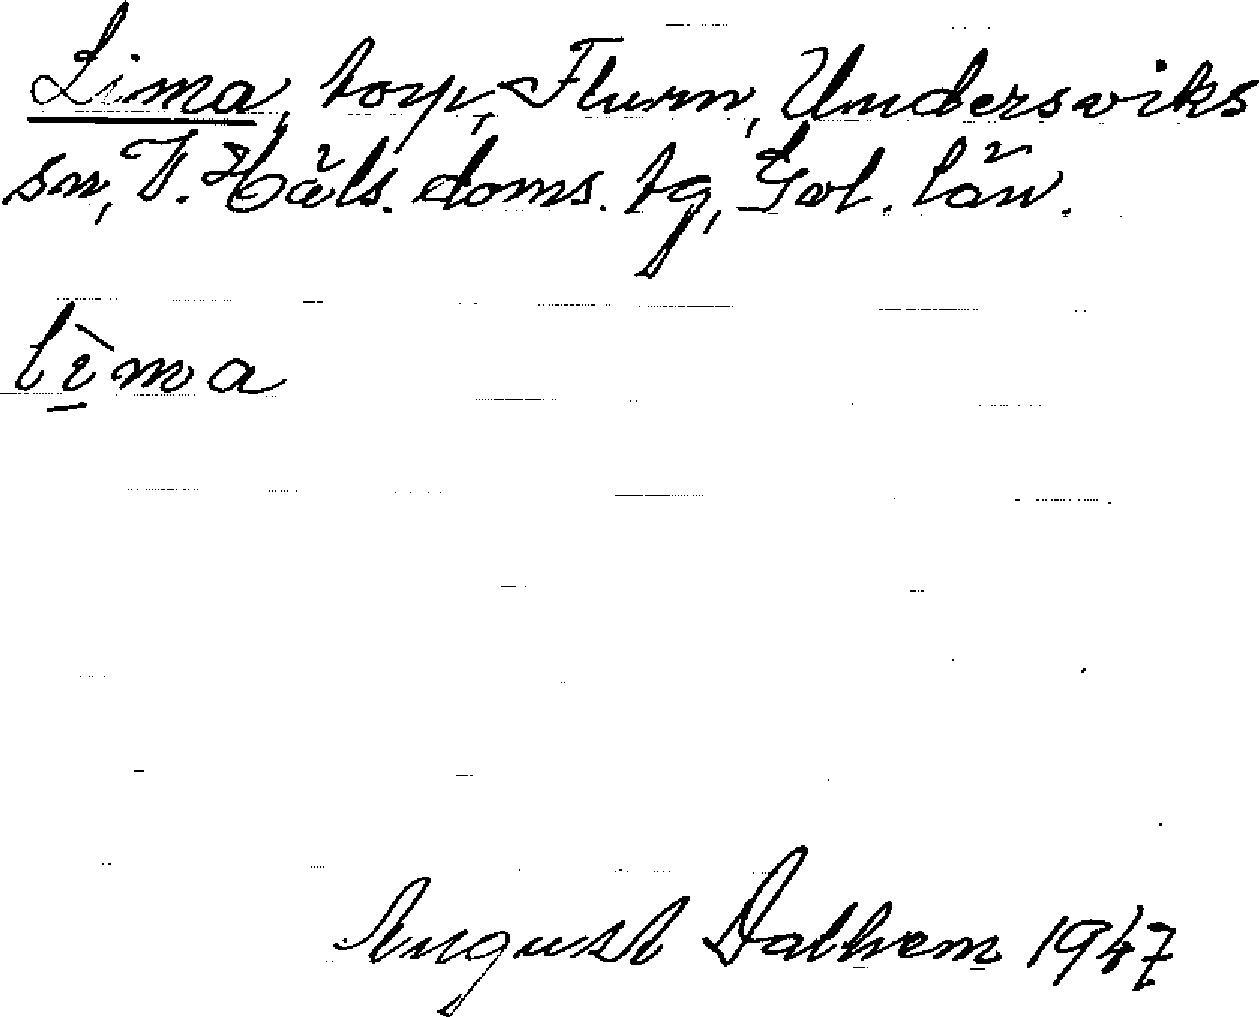 Lima, torp, Flurn, Undersviks
sn, V. Häls. doms. tg, Gvl. län.
lìma
August Dalhem 1947